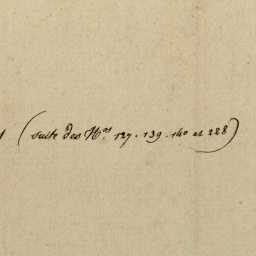 (suite des Nos. 127. 139. 140 et 288)